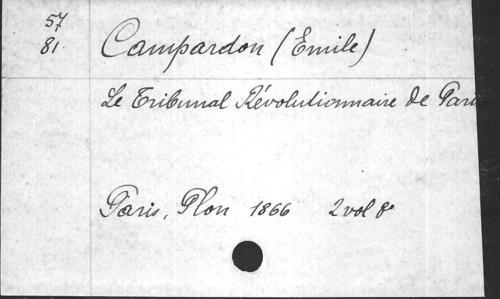 57
81.
Campardon (Emile)
Le Tribunal Révolutionnaire de Paris
Paris, Plon 1866 2 vol 8°